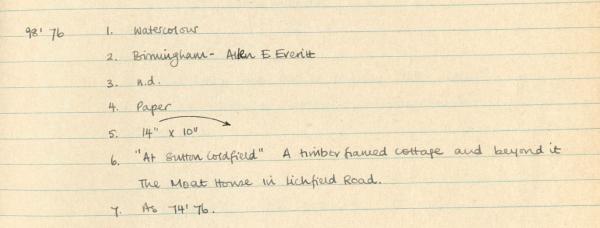 98' 76 1. Watercolour
2. Birmingham - Allen E Everitt
3. n.d.
4. Paper
5. 14" x 10"
6. "At Sutton Coldfield" A timber framed cottage and beyond it
The Moat House in Lichfield Road.
7. As 74' 76.